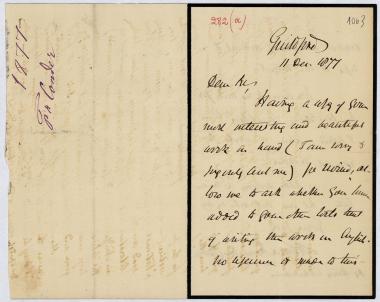 1877
Fr Conder
282 (a)
1063
Guildford
11 Dec. 1877
Dear Sir,
Having a copy of your
most interesting and beautiful
work in hand (I am sorry to
say only lent me) for review, al-
low me to ask whether you have
added to your other that
of writing the work in English.
No reference is made to this